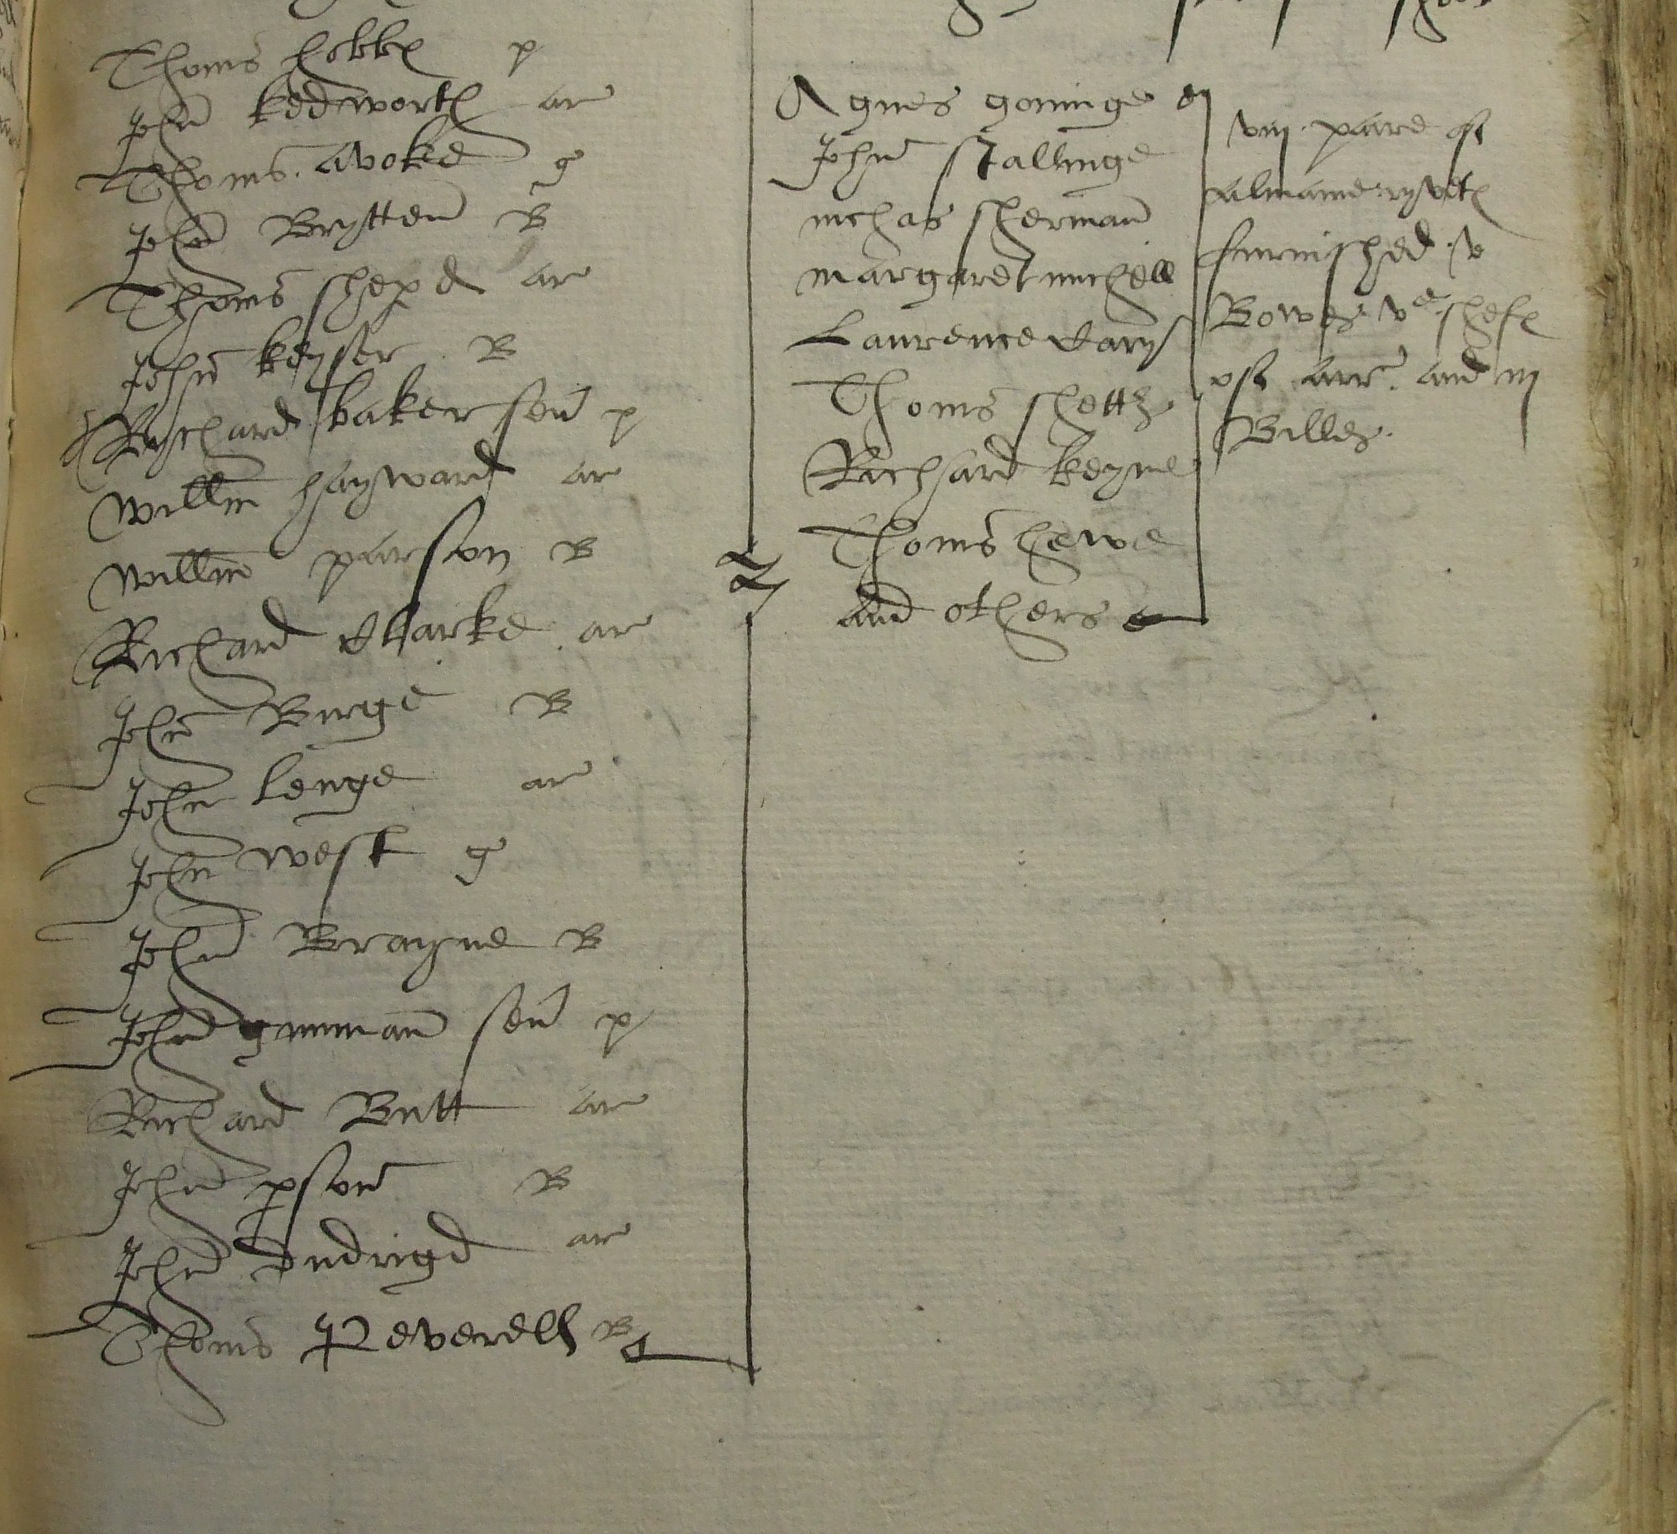 Thoms hobbs p
John kedworth ar
Thoms Avoke g
John Brytten B
Thoms shepd ar
John keyser B
Rychard baker sen p
Willm hayward ar
Willm parson B
Richard Clarke ar
John Burge B
John lenge ar
John west g
John Brayne B
John gumman sen p
Richard Butt ar
John pson B
John ar
Thoms Peverell B
Agnes goninge
John stallinge
nichas sherman
margaret michell
Laurence Carys
Thoms
Richard keyne
Thoms hewe
and others
viij paire of
almaine ryvetts
furnished v
Bowes v shefs
of arr and iij
Billes